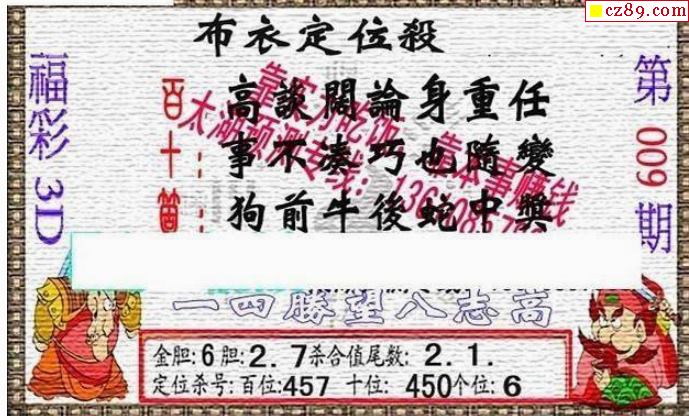 cz89.com
布衣定位殺
福彩 3D
第 009 期
百:高談闊論身重任
十:事不湊巧也隨變
狗前牛後蛇中獎
一四勝望八志高
金胆:6 胆:2.7杀合值尾数:2.1.
定位杀号:百位:457 十位:450个位:6